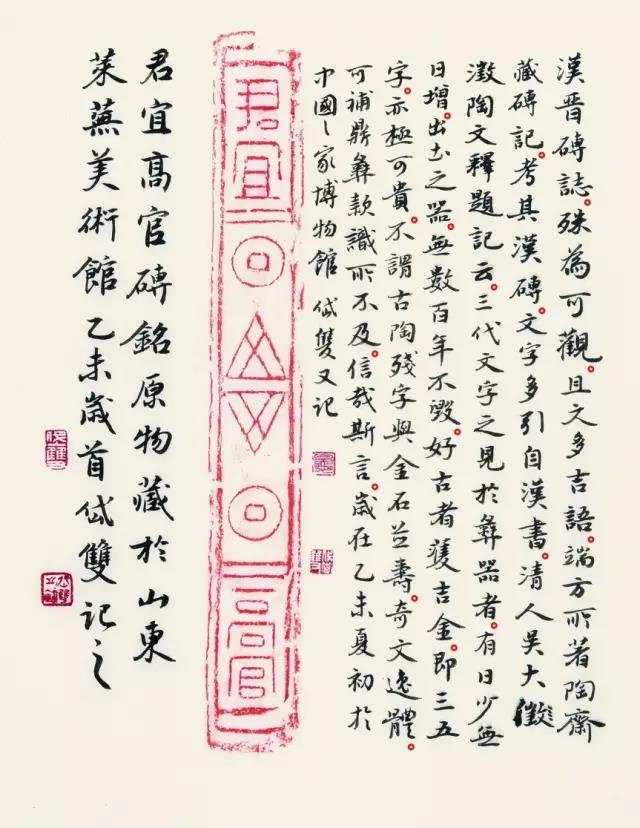 漢晉磚誌。殊為可觀。且文多吉語。端方所著陶齋
藏磚記。考其漢磚。文字多引自漢書。清人吳大徵
澂陶文釋題記云。三代文字之見於彝器者。有日少無
日增。出土之器。無數百年不毀。好古者獲吉金。即三五
字。亦極可貴。不謂古陶殘字與金石並壽。奇文逸體。
可補鼎彝款識所不及。信哉斯言。歲在乙未夏初於
中國〻家博物館 岱雙又記
君宜高官
君宜高官磚銘原物藏於山東
萊蕪美術館乙未歲首岱雙記之